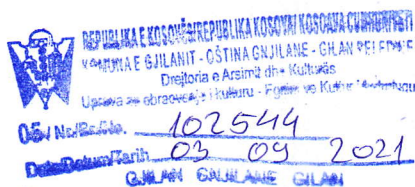 REPUBLIKA E KOSOVËS/REPUBLIKA KOSOVA/KOSOVA CUMHURIYETI
KOMUNA E GJILANIT - OPŠTINA GNJILANE - GILAN BELEDIYE
Drejtoria e Arsimit dhe Kulturës
Uprava za obrazovanje i kulturu - Egitim ve Kultur
05/ Nr/Br/No. 102544
Data/Datum/Tarih 03 09 2021
GJILAN GNJILANE GILAN